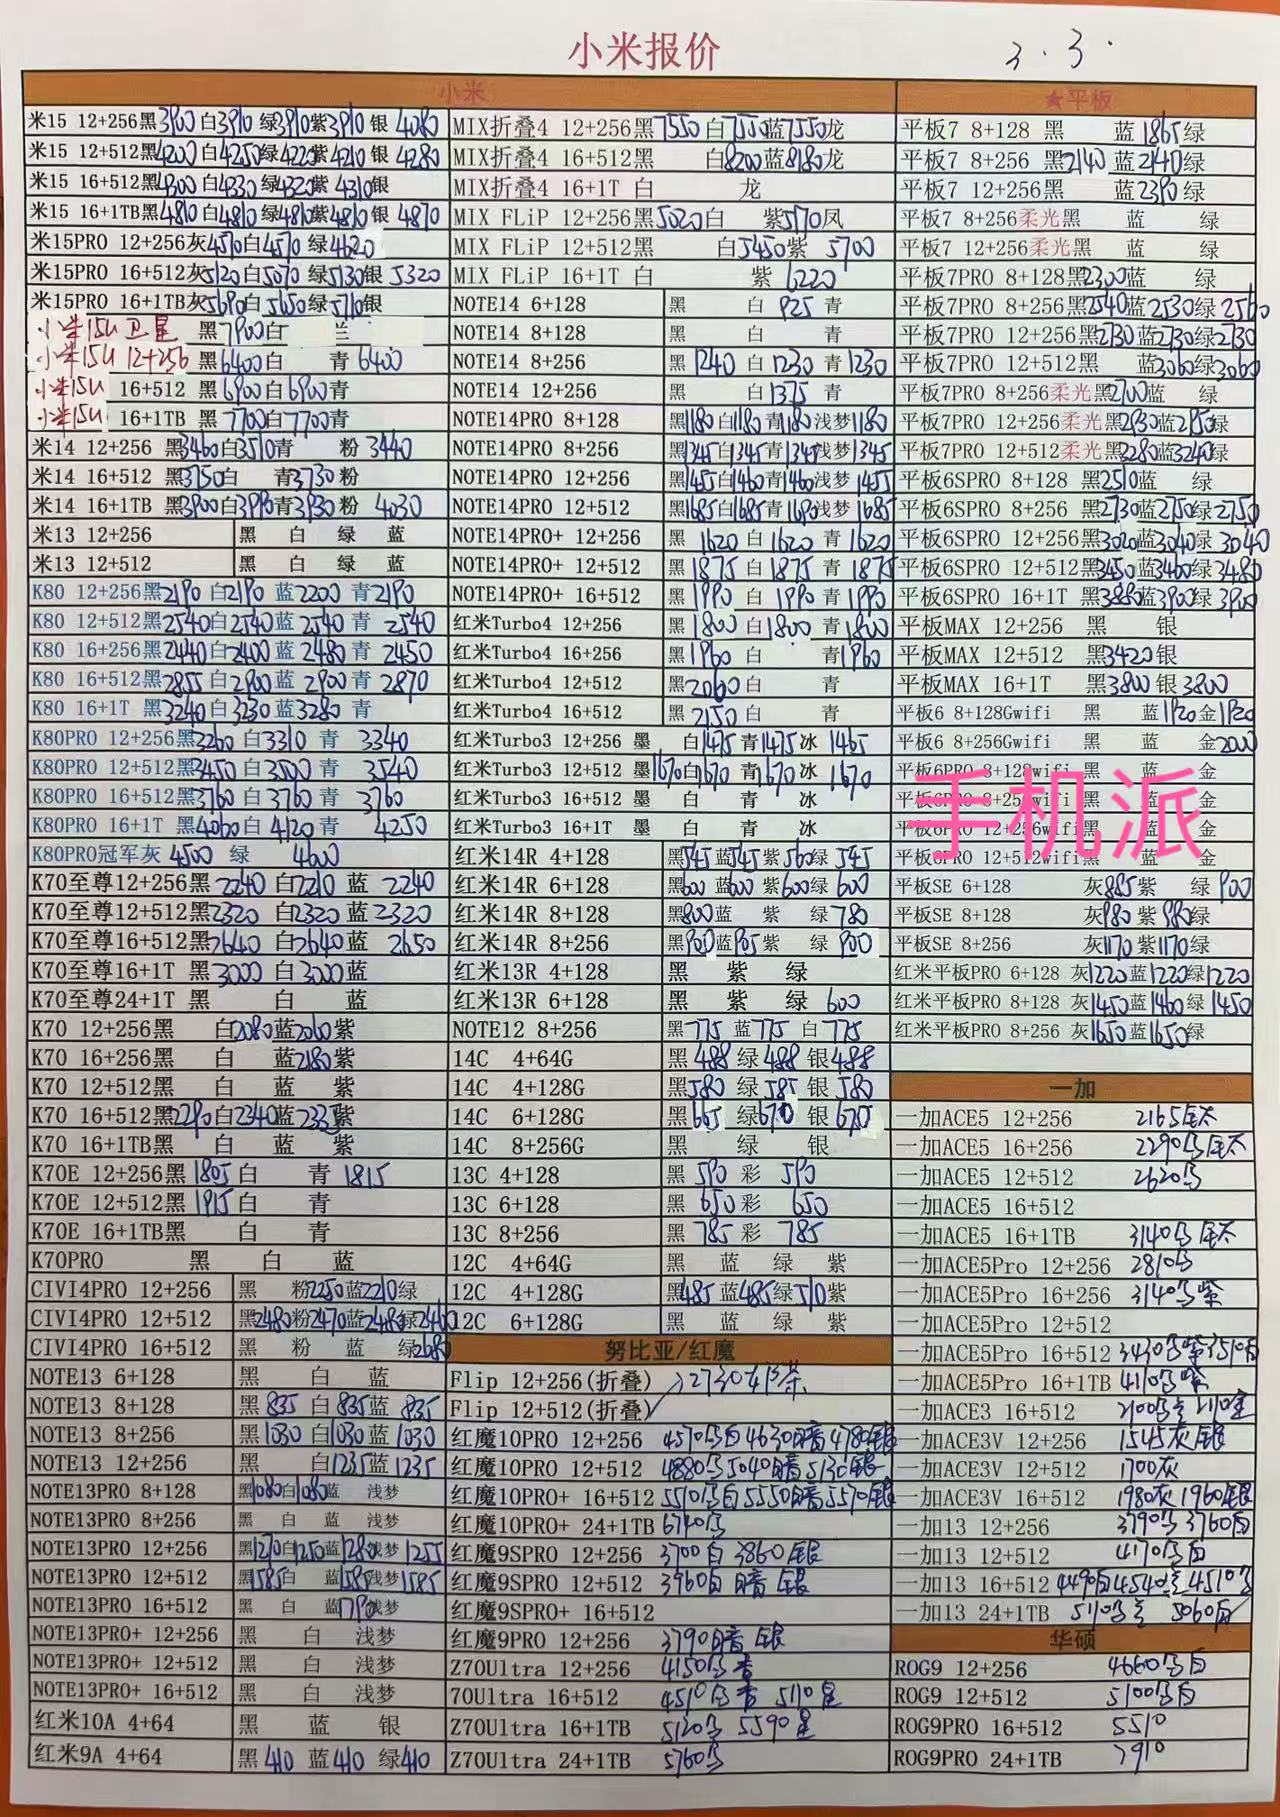 小米报价
3.3.
小米
米15 12+256黑3900白3910绿3910紫3910银 4080
米15 12+512黑4200白4250绿4220紫4210银 4280
米15 16+512黑4300白4330绿4320紫4310银
米15 16+1TB黑4810白4810绿4810紫4810银 4870
米15PRO 12+256灰4570白4570绿4620
米15PRO 16+512灰5120白5070绿5130银 5320
米15PRO 16+1TB灰5690白5650绿5710银
小米15U 卫星 黑7900白 兰
小米15U 12+256 黑6400白 青6400
小米15U 16+512 黑6900白6900青
小米15U 16+1TB 黑7700白7700青
米14 12+256 黑3460白3510青 粉3440
米14 16+512 黑3750白 青3730粉
米14 16+1TB 黑3900白3990青3930粉 4030
米13 12+256 黑 白 绿 蓝
米13 12+512 黑 白 绿 蓝
K80 12+256黑2190白2190蓝2200青2190
K80 12+512黑2540白2540蓝2540青 2540
K80 16+256黑2440白2400蓝2480青 2450
K80 16+512黑2855白2900蓝2900青 2870
K80 16+1T 黑3240白3230蓝3280青
K80PRO 12+256黑3260白3310青 3340
K80PRO 12+512黑3450白3500青 3540
K80PRO 16+512黑3760白3760青 3760
K80PRO 16+1T 黑4060白4120青 4250
K80PRO冠军灰 4500 绿 4600
K70至尊12+256黑2240白2210蓝 2240
K70至尊12+512黑2320白2320蓝2320
K70至尊16+512黑2640白2640蓝 2650
K70至尊16+1T 黑3000白3000蓝
K70至尊24+1T 黑 白 蓝
K70 12+256黑 白2080蓝2060紫
K70 16+256黑 白 蓝2180紫
K70 12+512黑 白 蓝 紫
K70 16+512黑2290白2340蓝2335紫
K70 16+1TB黑 白 蓝 紫
K70E 12+256黑1805白 青1815
K70E 12+512黑1915白 青
K70E 16+1TB黑 白 青
K70PRO 黑 白 蓝
CIVI4PRO 12+256 黑 粉2250蓝2210绿
CIVI4PRO 12+512 黑2480粉2470蓝2485绿2440
CIVI4PRO 16+512 黑 粉 蓝 绿2680
NOTE13 6+128 黑 白 蓝
NOTE13 8+128 黑835白835蓝835
NOTE13 8+256 黑1030白1030蓝1030
NOTE13 12+256 黑 白1235蓝1235
NOTE13PRO 8+128 黑1080白1080蓝 浅梦
NOTE13PRO 8+256 黑 白 蓝 浅梦
NOTE13PRO 12+256 黑1270白1250蓝1280浅梦1255
NOTE13PRO 12+512 黑1585白 蓝1585浅梦1585
NOTE13PRO 16+512 黑 白 蓝1790浅梦
NOTE13PRO+ 12+256 黑 白 浅梦
NOTE13PRO+ 12+512 黑 白 浅梦
NOTE13PRO+ 16+512 黑 白 浅梦
红米10A 4+64 黑 蓝 银
红米9A 4+64 黑410蓝410绿410
MIX折叠4 12+256黑7550白7550蓝7550龙
MIX折叠4 16+512黑 白8200蓝8180龙
MIX折叠4 16+1T 白 龙
MIX FLiP 12+256黑5020白 紫5170凤
MIX FLiP 12+512黑 白5450紫 5700
MIX FLiP 16+1T 白 紫6220
NOTE14 6+128 黑 白925青
NOTE14 8+128 黑 白 青
NOTE14 8+256 黑1240白1230青1230
NOTE14 12+256 黑 白1375青
NOTE14PRO 8+128 黑1180白1180青1180浅梦1180
NOTE14PRO 8+256 黑1345白1345青1345浅梦1345
NOTE14PRO 12+256 黑1455白1460青1460浅梦1455
NOTE14PRO 12+512 黑1685白1685青1690浅梦1685
NOTE14PRO+ 12+256 黑1620白1620青1620
NOTE14PRO+ 12+512 黑1875白1875青1875
NOTE14PRO+ 16+512 黑1990白1990青1990
红米Turbo4 12+256 黑1800白1800青1800
红米Turbo4 16+256 黑1960白 青1960
红米Turbo4 12+512 黑2060白 青
红米Turbo4 16+512 黑2150白 青
红米Turbo3 12+256 墨 白1475青1475冰1465
红米Turbo3 12+512 墨1670白1670青1670冰 1670
红米Turbo3 16+512 墨 白 青 冰
红米Turbo3 16+1T 墨 白 青 冰
红米14R 4+128 黑545蓝545紫560绿545
红米14R 6+128 黑600蓝600紫600绿600
红米14R 8+128 黑800蓝 紫 绿780
红米14R 8+256 黑900蓝905紫 绿900
红米13R 4+128 黑 紫 绿
红米13R 6+128 黑 紫 绿600
NOTE12 8+256 黑775蓝775白775
14C 4+64G 黑488绿488银488
14C 4+128G 黑580绿585银580
14C 6+128G 黑665绿670银670
14C 8+256G 黑 绿 银
13C 4+128 黑590彩590
13C 6+128 黑650彩650
13C 8+256 黑785彩785
12C 4+64G 黑 蓝 绿 紫
12C 4+128G 黑485蓝485绿510紫
12C 6+128G 黑 蓝 绿 紫
努比亚/红魔
Flip 12+256(折叠) 2730
Flip 12+512(折叠)
红魔10PRO 12+256 4570乌白4630暗4780银
红魔10PRO 12+512 4880乌5040暗5130银
红魔10PRO+ 16+512 5510乌白5550暗5570银
红魔10PRO+ 24+1TB 6740乌
红魔9SPRO 12+256 3700白3860银
红魔9SPRO 12+512 3960白暗银
红魔9SPRO+ 16+512
红魔9PRO 12+256 3790暗银
Z70Ultra 12+256 4150乌
70Ultra 16+512 4510乌 5110星
Z70Ultra 16+1TB 5120乌 5590星
Z70Ultra 24+1TB 5760乌
★平板
平板7 8+128 黑 蓝1865绿
平板7 8+256 黑2140蓝2140绿
平板7 12+256黑 蓝2390绿
平板7 8+256柔光黑 蓝 绿
平板7 12+256柔光黑 蓝 绿
平板7PRO 8+128黑2300蓝 绿
平板7PRO 8+256黑2540蓝2530绿2560
平板7PRO 12+256黑2730蓝2730绿2730
平板7PRO 12+512黑 蓝3060绿3060
平板7PRO 8+256柔光黑2700蓝 绿
平板7PRO 12+256柔光黑2930蓝2950绿
平板7PRO 12+512柔光黑3280蓝3240绿
平板6SPRO 8+128 黑2510蓝 绿
平板6SPRO 8+256 黑2730蓝2750绿2750
平板6SPRO 12+256黑3020蓝3040绿3040
平板6SPRO 12+512黑3450蓝3460绿3480
平板6SPRO 16+1T 黑3880蓝3900绿3900
平板MAX 12+256 黑 银
平板MAX 12+512 黑3420银
平板MAX 16+1T 黑3800银3800
平板6 8+128Gwifi 黑 蓝1920金1920
平板6 8+256Gwifi 黑 蓝 金2000
平板6PRO 8+128wifi 黑 蓝 金
平板6PRO 8+256wifi 黑 蓝 金
平板6PRO 12+256wifi黑 蓝 金
平板6PRO 12+512wifi黑 蓝 金
手机派
平板SE 6+128 灰885紫 绿900
平板SE 8+128 灰980紫980绿
平板SE 8+256 灰1170紫1170绿
红米平板PRO 6+128 灰1220蓝1220绿1220
红米平板PRO 8+128 灰1450蓝1460绿1450
红米平板PRO 8+256 灰1650蓝1650绿
一加
一加ACE5 12+256 2165钛
一加ACE5 16+256 2290乌钛
一加ACE5 12+512 2620乌
一加ACE5 16+512
一加ACE5 16+1TB 3140乌钛
一加ACE5Pro 12+256 2810乌
一加ACE5Pro 16+256 3140乌紫
一加ACE5Pro 12+512
一加ACE5Pro 16+512 3430乌紫3510白
一加ACE5Pro 16+1TB 4110乌紫
一加ACE3 16+512 2100乌 2110
一加ACE3V 12+256 1545灰银
一加ACE3V 12+512 1700灰
一加ACE3V 16+512 1980灰1960银
一加13 12+256 3790乌3760白
一加13 12+512 4170乌白
一加13 16+512 4490白4540兰4510乌
一加13 24+1TB 5110乌兰 5060白
华硕
ROG9 12+256 4660乌白
ROG9 12+512 5100乌白
ROG9PRO 16+512 5510
ROG9PRO 24+1TB 7910